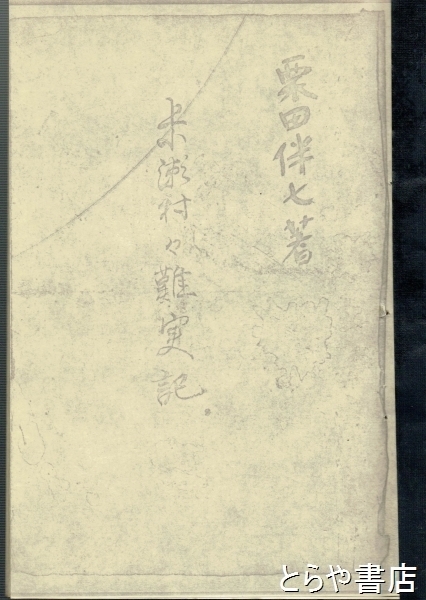 栗田伴七著
米瀬村々難実記。
とらや書店